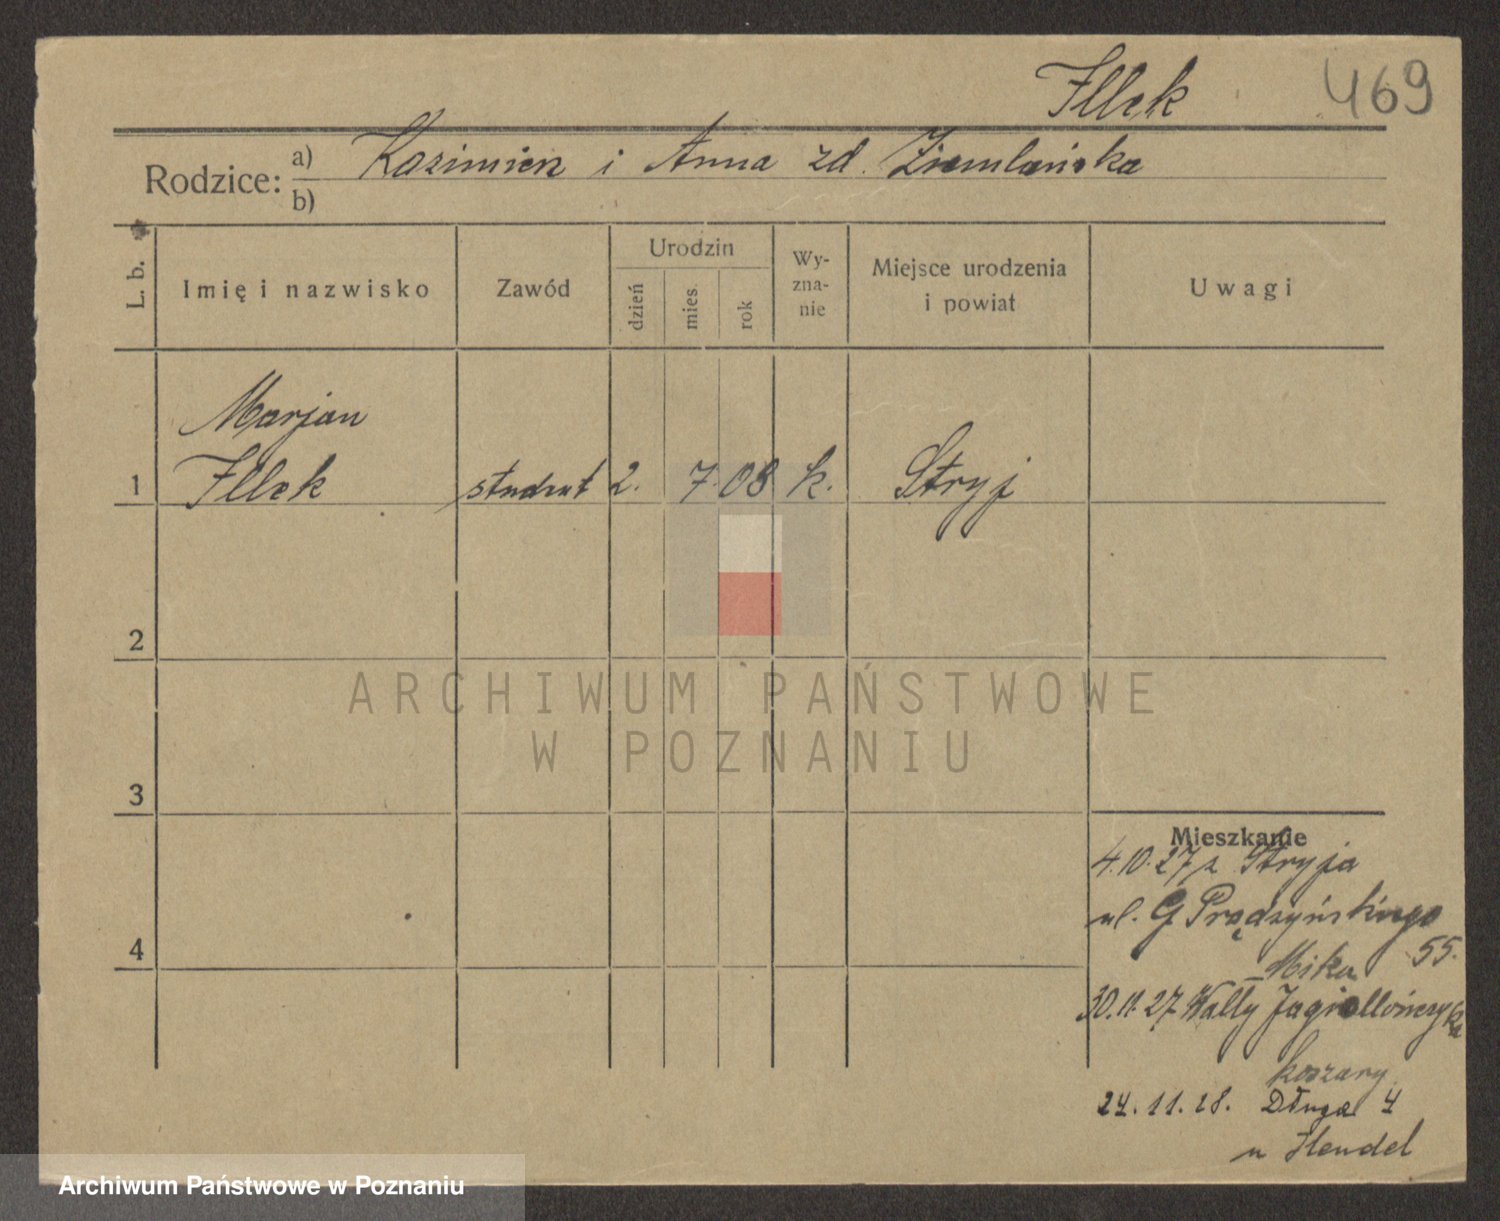 Illek 469
Rodzice: a) Kazimierz i Anna zd. Ziemlańska
b)
L. b. Imię i nazwisko Zawód Urodzin dzień mies. rok Wy-zna-nie Miejsce urodzenia i powiat Uwagi
Marjan
1 Illek student 2. 7. 08 k. Stryj
2
ARCHIWUM PAŃSTWOWE
W POZNANIU
3
Mieszkanie
4.10.27 z Stryja
ul. G. Prądzyńskiego
55.
Mika
4
30.11.27 Wally Jagiellończyka
koszary
24.11.28. Długa 4
u Hendel
Archiwum Państwowe w Poznaniu